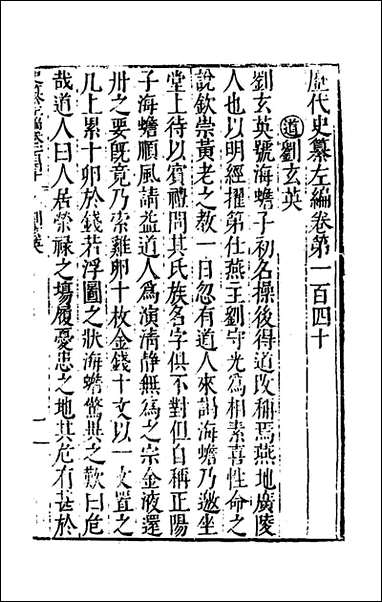 歷代史纂左編卷第一百四十
道劉玄英
劉玄英號海蟾子初名操後得道改稱焉燕地廣陵
人也以明經擢第仕燕主劉守光為相素喜性命之
說欽崇黃老之教一日忽有道人來謁海蟾乃邀坐
堂上待以賓禮問其氏族名字俱不對但自稱正陽
子海蟾順風請益道人為演清静無為之宗金液還
丹之要既竟乃索雞卵十枚金錢十文以一文置之
几上累十卵於錢若浮圖之狀海蟾驚異之歎曰危
哉道人曰人居榮祿之塲履憂患之地其危有甚於